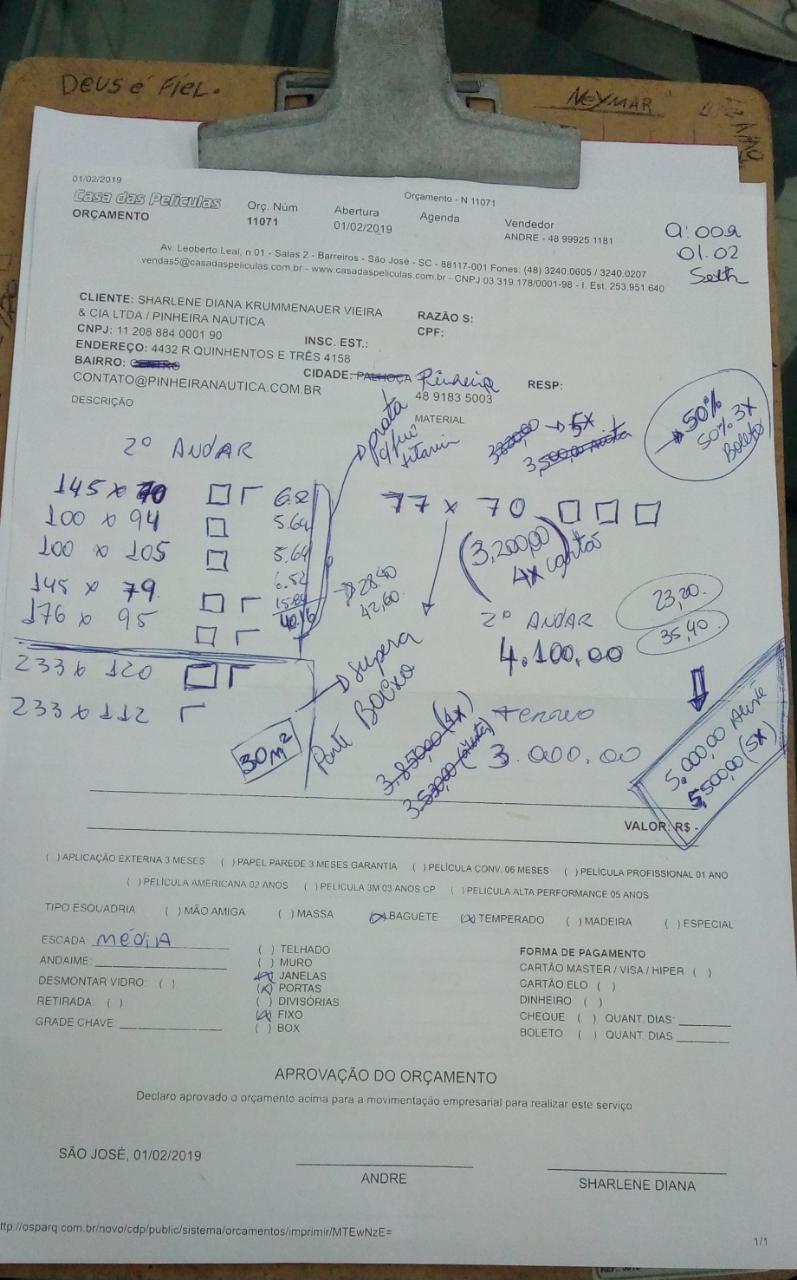 DEUS é FIEL.
NEYMAR
01/02/2019
Casa das Películas
ORÇAMENTO
Orç. Núm
11071
Abertura
01/02/2019
Orçamento - N 11071
Agenda
Vendedor
ANDRE - 48 99925 1181
01.02
Av. Leoberto Leal, n 01 - Salas 2 - Barreiros - São José - SC - 88117-001 Fones: (48) 3240.0605 / 3240.0207
vendas5@casadaspeliculas.com.br - www.casadaspeliculas.com.br - CNPJ 03.319.178/0001-98 - I. Est. 253.951.640
CLIENTE: SHARLENE DIANA KRUMMENAUER VIEIRA
& CIA LTDA / PINHEIRA NAUTICA
CNPJ: 11 208 884 0001 90
INSC. EST.:
RAZÃO S:
CPF:
ENDEREÇO: 4432 R QUINHENTOS E TRÊS 4158
BAIRRO:
CIDADE: PALHOÇA Pinheira
RESP:
CONTATO@PINHEIRANAUTICA.COM.BR
48 9183 5003
DESCRIÇÃO
MATERIAL
Prata
50%
50% 3x
Boleto
3,500,00 Avista
2º ANDAR
145 x 70 6.52
100 x 94 5.64
100 x 105 5.64
145 x 79. 6.52
176 x 95
28.40
42,60.
233 x 120
233 x 112
77 x 70
(3,200,00)
4x cartão
2º ANDAR
4.100,00
23,20.
35,40.
Supera
Parte Baixa
30 m²
3.850,00 (4x)
Terreo
3.000,00
5.000,00 Avista
5,500,00 (5x)
VALOR: R$ -
( ) APLICAÇÃO EXTERNA 3 MESES ( ) PAPEL PAREDE 3 MESES GARANTIA ( ) PELÍCULA CONV. 06 MESES ( ) PELÍCULA PROFISSIONAL 01 ANO
( ) PELÍCULA AMERICANA 02 ANOS ( ) PELICULA 3M 03 ANOS CP ( ) PELICULA ALTA PERFORMANCE 05 ANOS
TIPO ESQUADRIA ( ) MÃO AMIGA ( ) MASSA (x) BAGUETE (x) TEMPERADO ( ) MADEIRA ( ) ESPECIAL
ESCADA MÉDIA
ANDAIME:
DESMONTAR VIDRO: ( )
RETIRADA: ( )
GRADE CHAVE:
( ) TELHADO
( ) MURO
(x) JANELAS
(x) PORTAS
( ) DIVISÓRIAS
(x) FIXO
( ) BOX
FORMA DE PAGAMENTO
CARTÃO MASTER / VISA / HIPER ( )
CARTÃO ELO ( )
DINHEIRO ( )
CHEQUE ( ) QUANT. DIAS:
BOLETO ( ) QUANT. DIAS
APROVAÇÃO DO ORÇAMENTO
Declaro aprovado o orçamento acima para a movimentação empresarial para realizar este serviço
SÃO JOSÉ, 01/02/2019
ANDRE
SHARLENE DIANA
ttp://osparq.com.br/novo/cdp/public/sistema/orcamentos/imprimir/MTEwNzE=
1/1